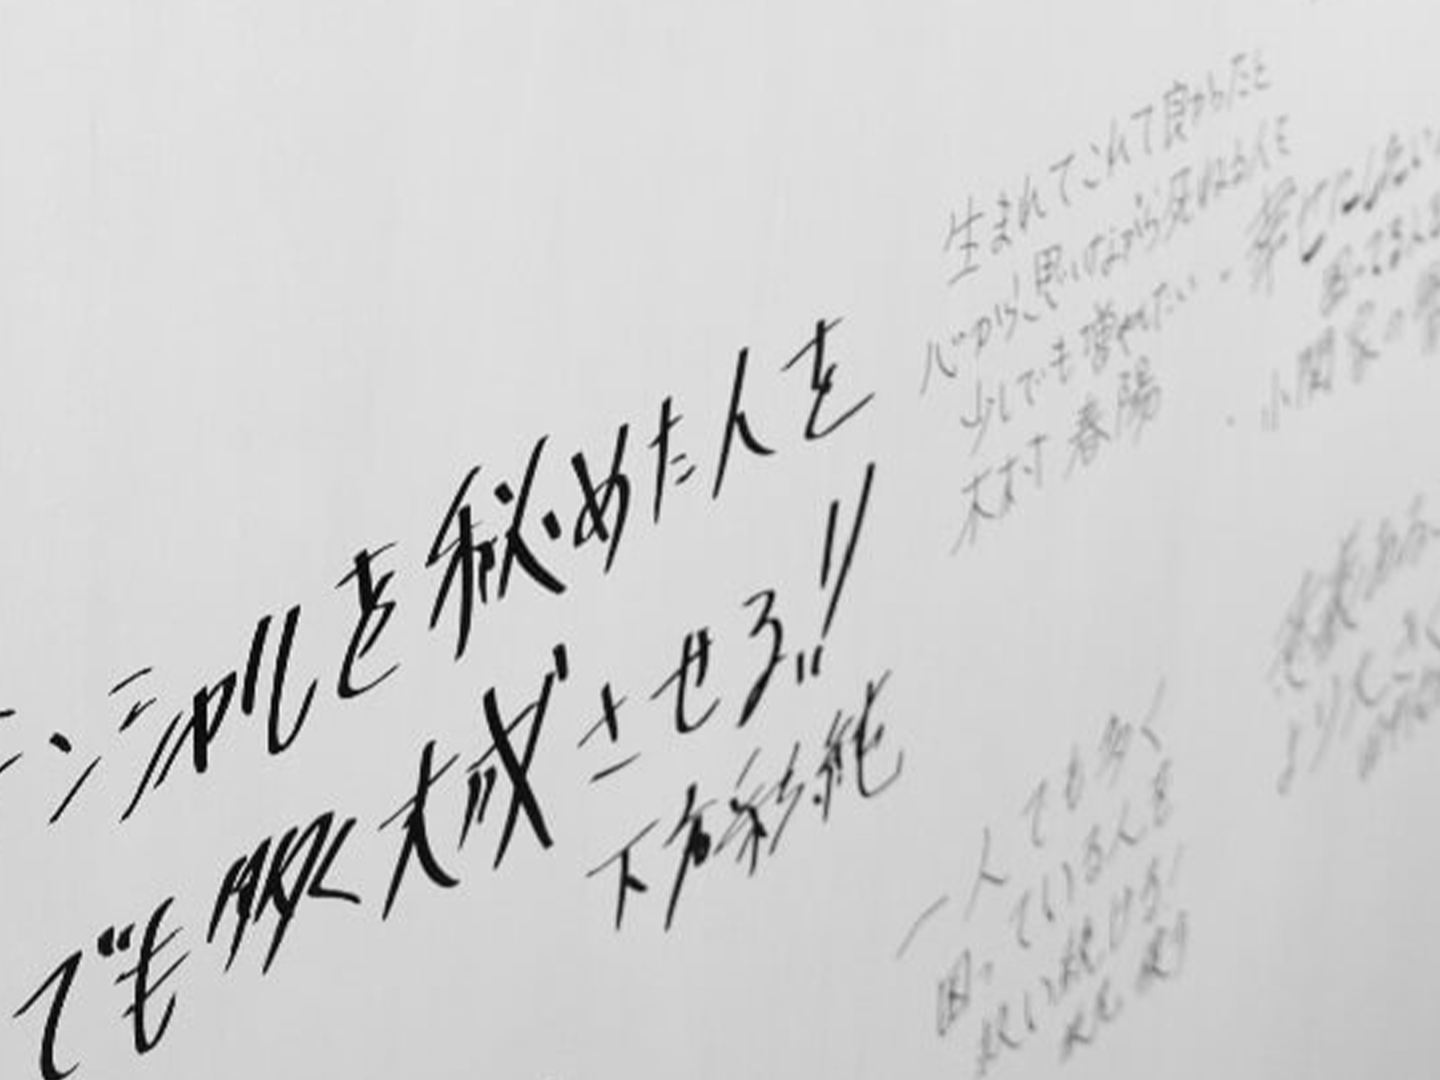 ンシャルを秘めた人を
でも多く大成させろ!!
下方彩純
生まれてこれて良かったと
心から思いながら死ねる人を
少しでも増やしたい
木村 春陽
幸せにしたい
困ってる人
小関家の
一人でも多く
困っている人を
救い続ける!